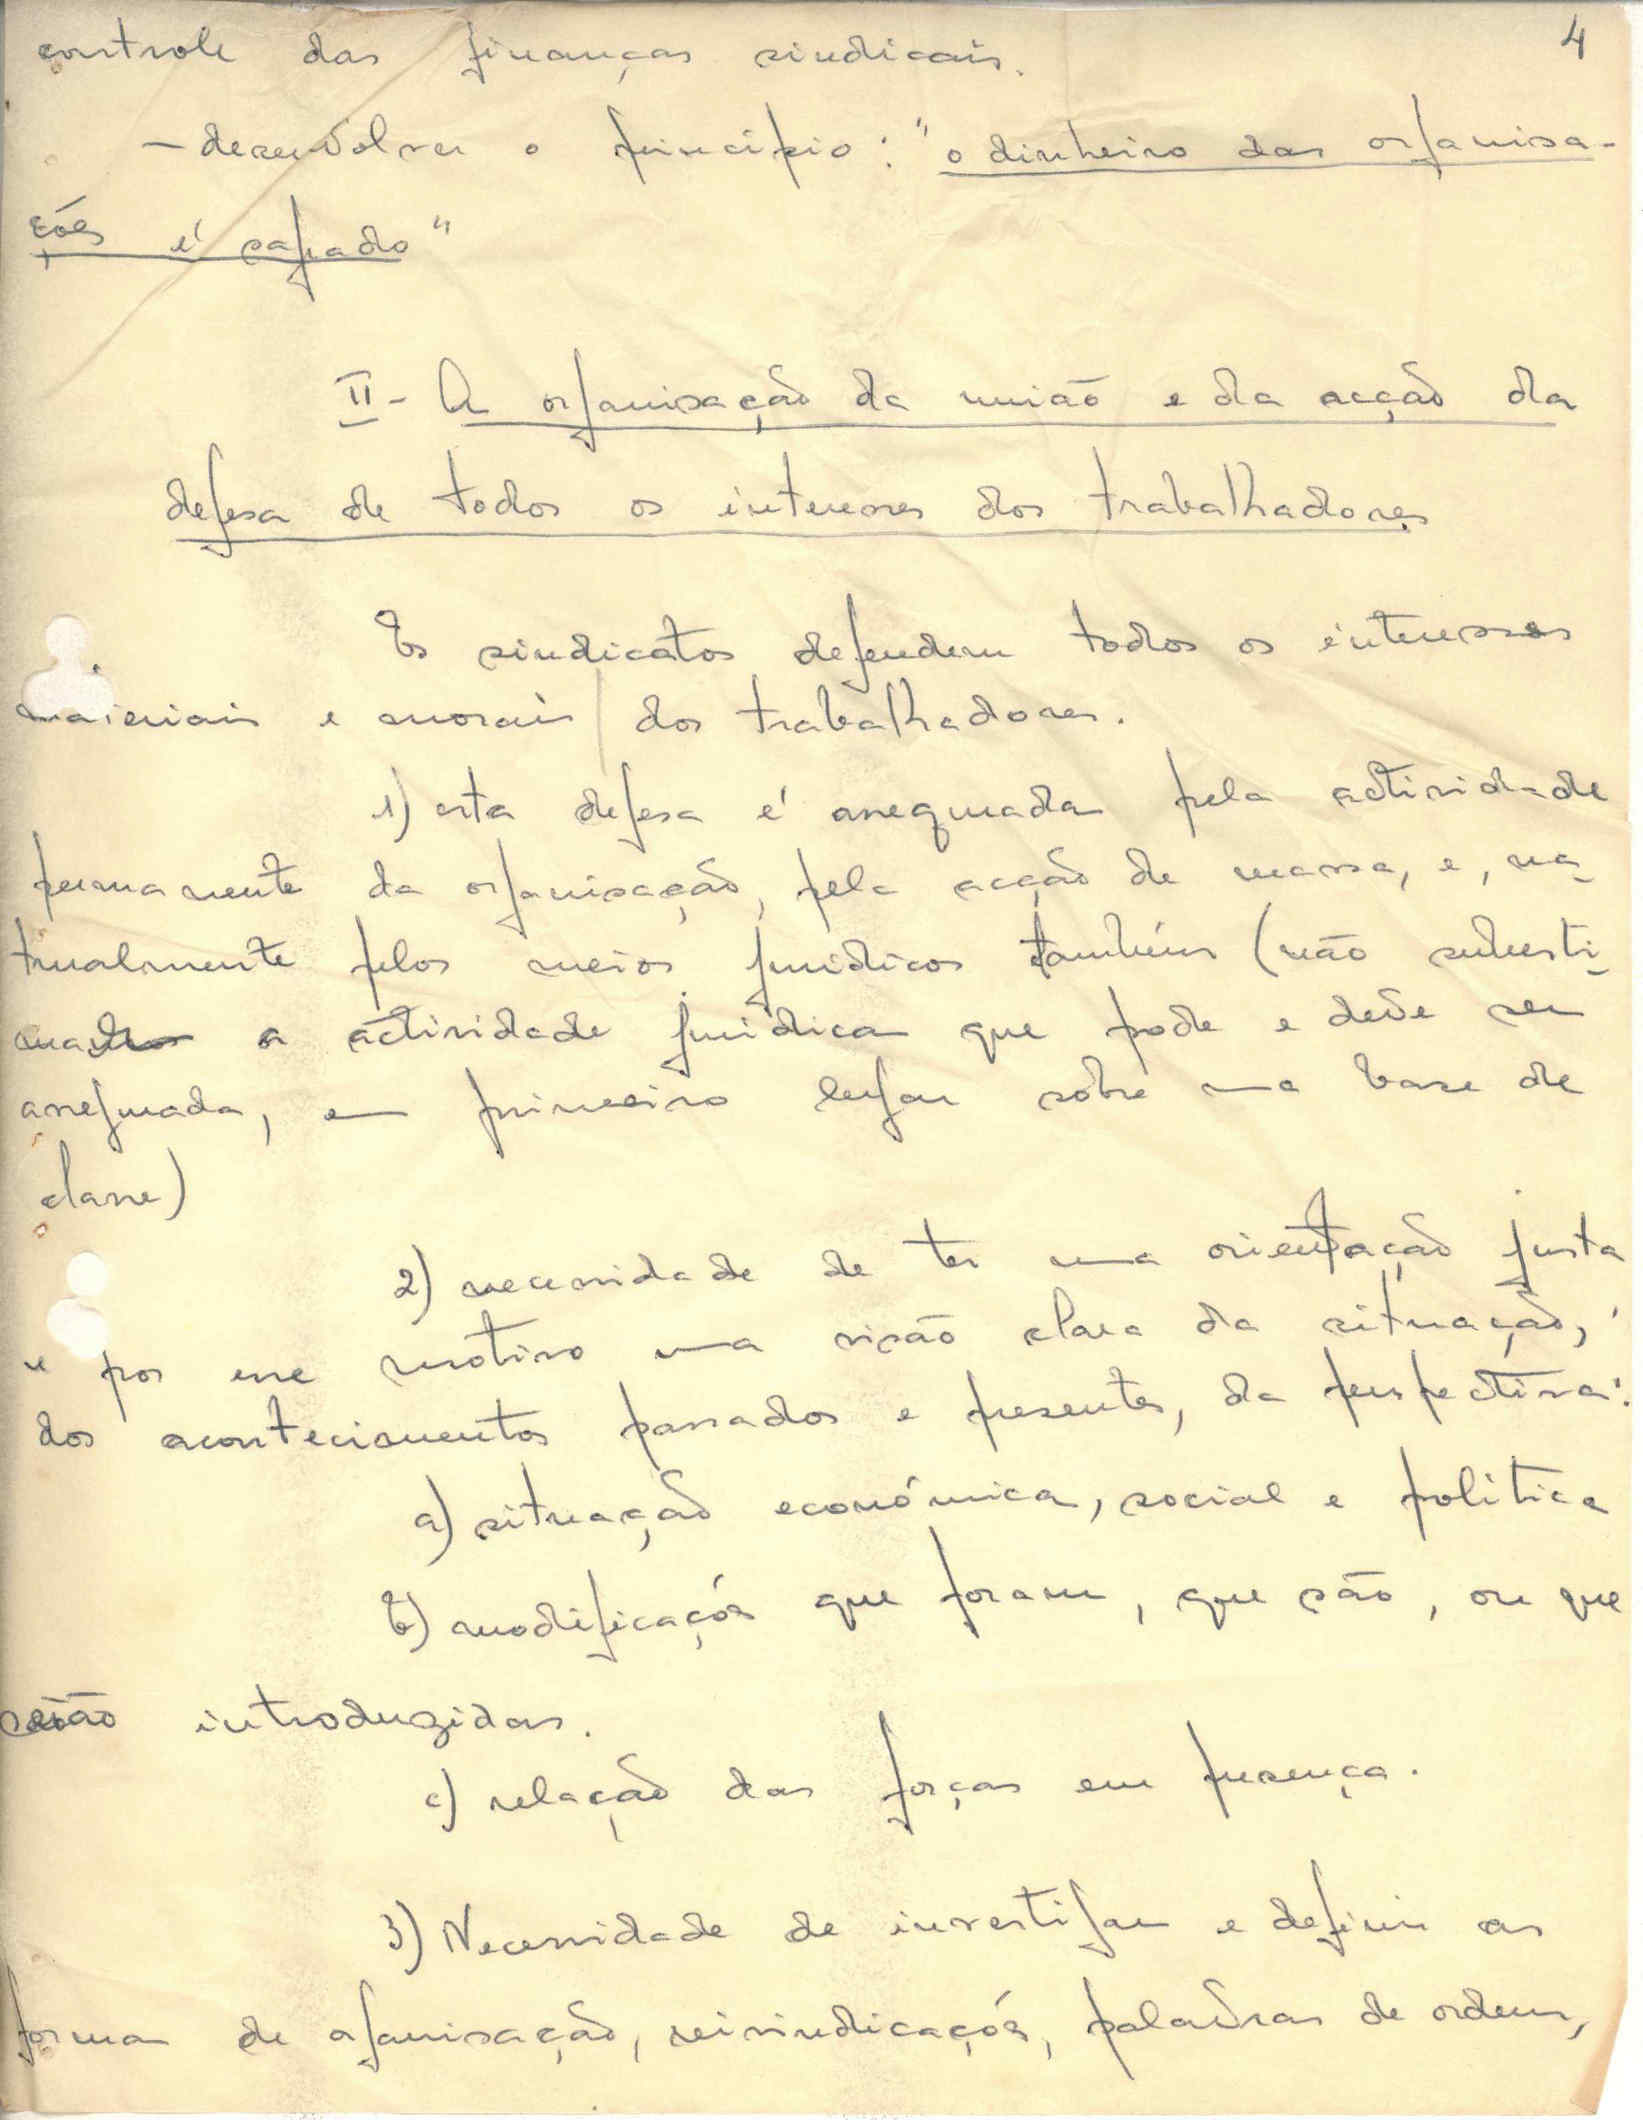 4
controle das finanças sindicais.
— desenvolver o princípio: "o dinheiro das organisa-
ções é sagrado"
II - A organisação da união e da acção da
defesa de todos os interesses dos trabalhadores
Os sindicatos defendem todos os interesses
materiais e morais dos trabalhadores.
1) esta defesa é assegurada pela actividade
permanente da organisação, pela acção de massa, e, na-
turalmente pelos meios jurídicos também (não subesti-
mando a actividade jurídica que pode e deve ser
assegurada, em primeiro lugar sobre uma base de
classe)
2) necessidade de ter uma orientação justa
e por esse motivo uma visão clara da situação,
dos acontecimentos passados e presentes, da perspectiva:
a) situação económica, social e política
b) modificações que foram, que são, ou que
serão introduzidas.
c) relação das forças em presença.
3) Necessidade de investigar e definir as
formas de organisação, reivindicações, palavras de ordem,